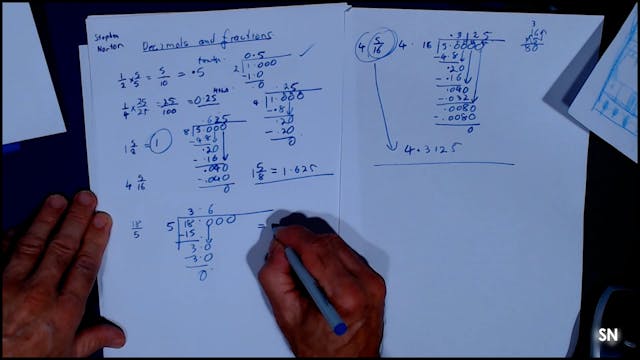 Stephen Norton
Decimals and fractions
1/2 × 5/5 = 5/10 = .5
0.5
2 1.000
-1.0
0
1/4 × 25/25 = 25/100 = 0.25
.25
4 1.000
-.8
.20
-.20
0
1 5/8 = 1
.625
8 5.000
-4.8
.20
-.16
.040
-.040
0
1 5/8 = 1.625
4 5/16
18/5
3.6
5 18.000
-15
3.0
-3.0
0
=
4 5/16
4.
.3125
16 5.0000
-4.8
.20
-.16
.040
-.032
.0080
-.0080
0
3
16
×5
80
4.3125
SN